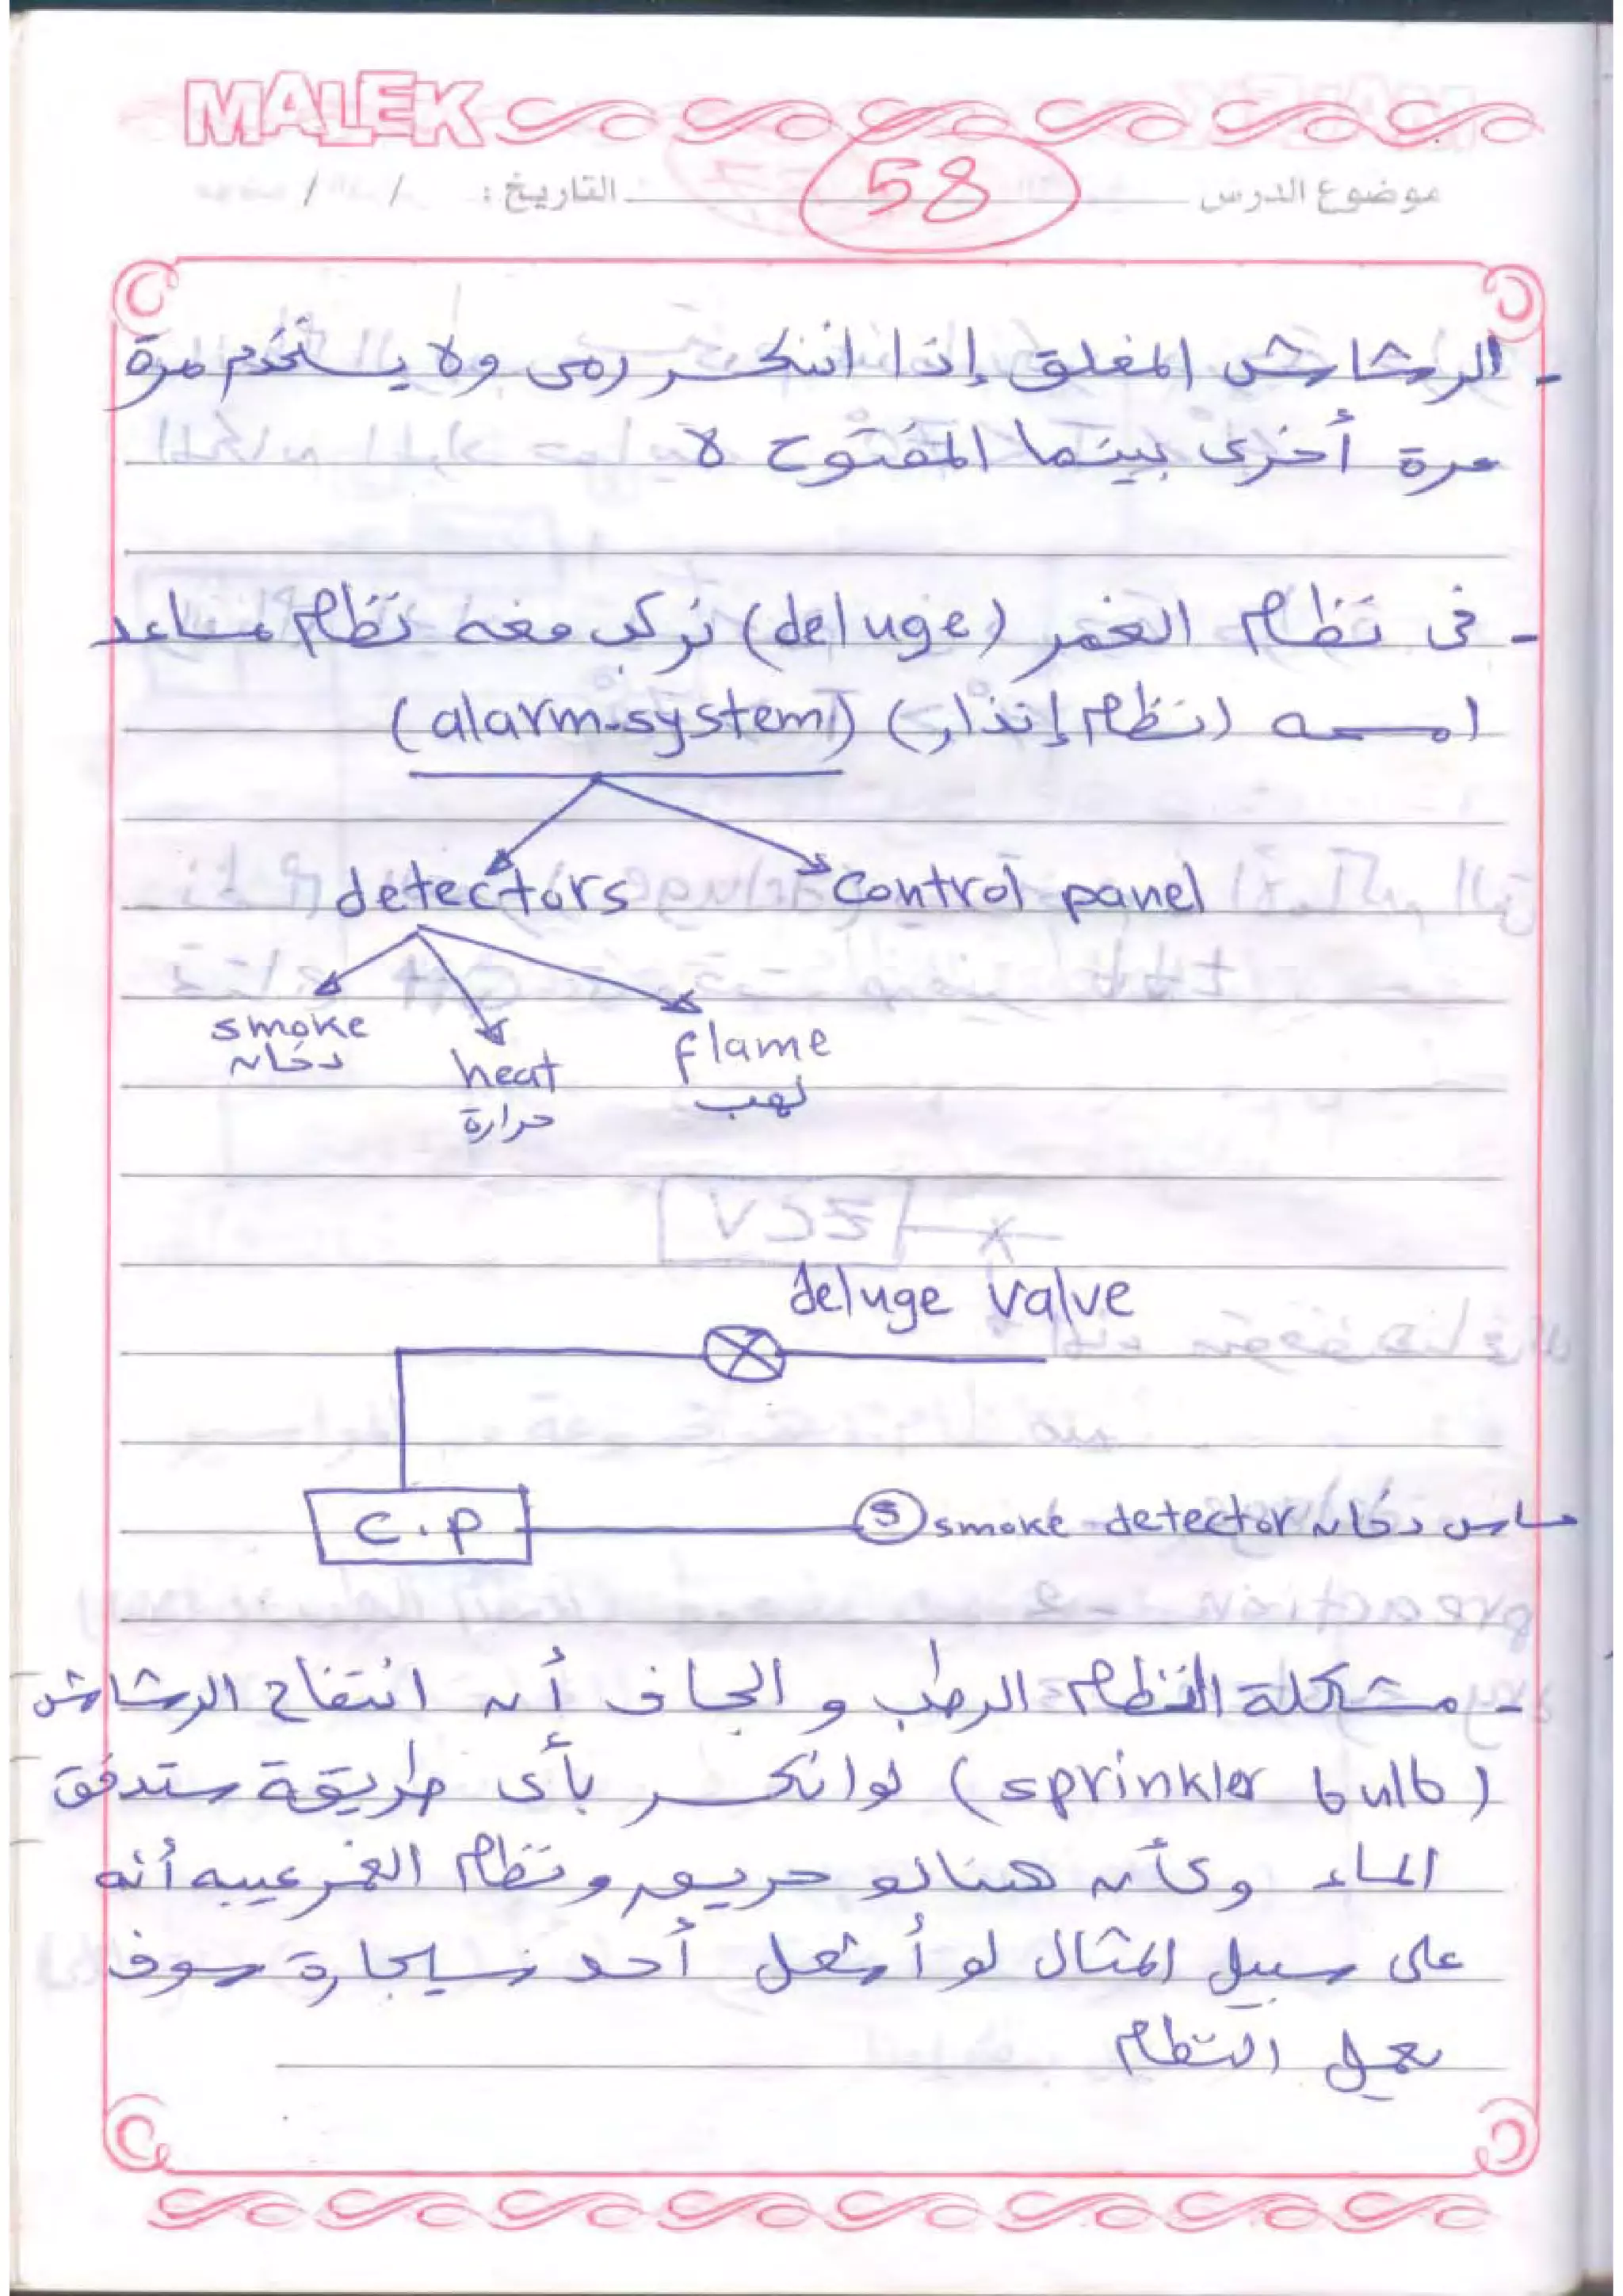 MALEK
موضوع الدرس 58 التاريخ: / /
- الرشاش المغلق إذا انكسر رمى ولا يستخدم مرة
مرة أخرى بينما المفتوح لا
- فى نظام الغمر (deluge) نركب معه نظام مساعد
اسمه (نظام إنذار) (alarm-system)
detectors control panel
smoke heat flame
دخان حرارة لهب
deluge valve
C.P S smoke detector حساس دخان
- مشكلة النظام الرطب و الجاف أن انتفاخ الرشاش
(sprinkler bulb) لو انكسر بأى طريقة ستدفق
الماء وكأن هنالو حريق ونظام الغمر عيبه أنه
على سبيل المثال لو أشعل أحد سيجارة سوف
يعمل النظام